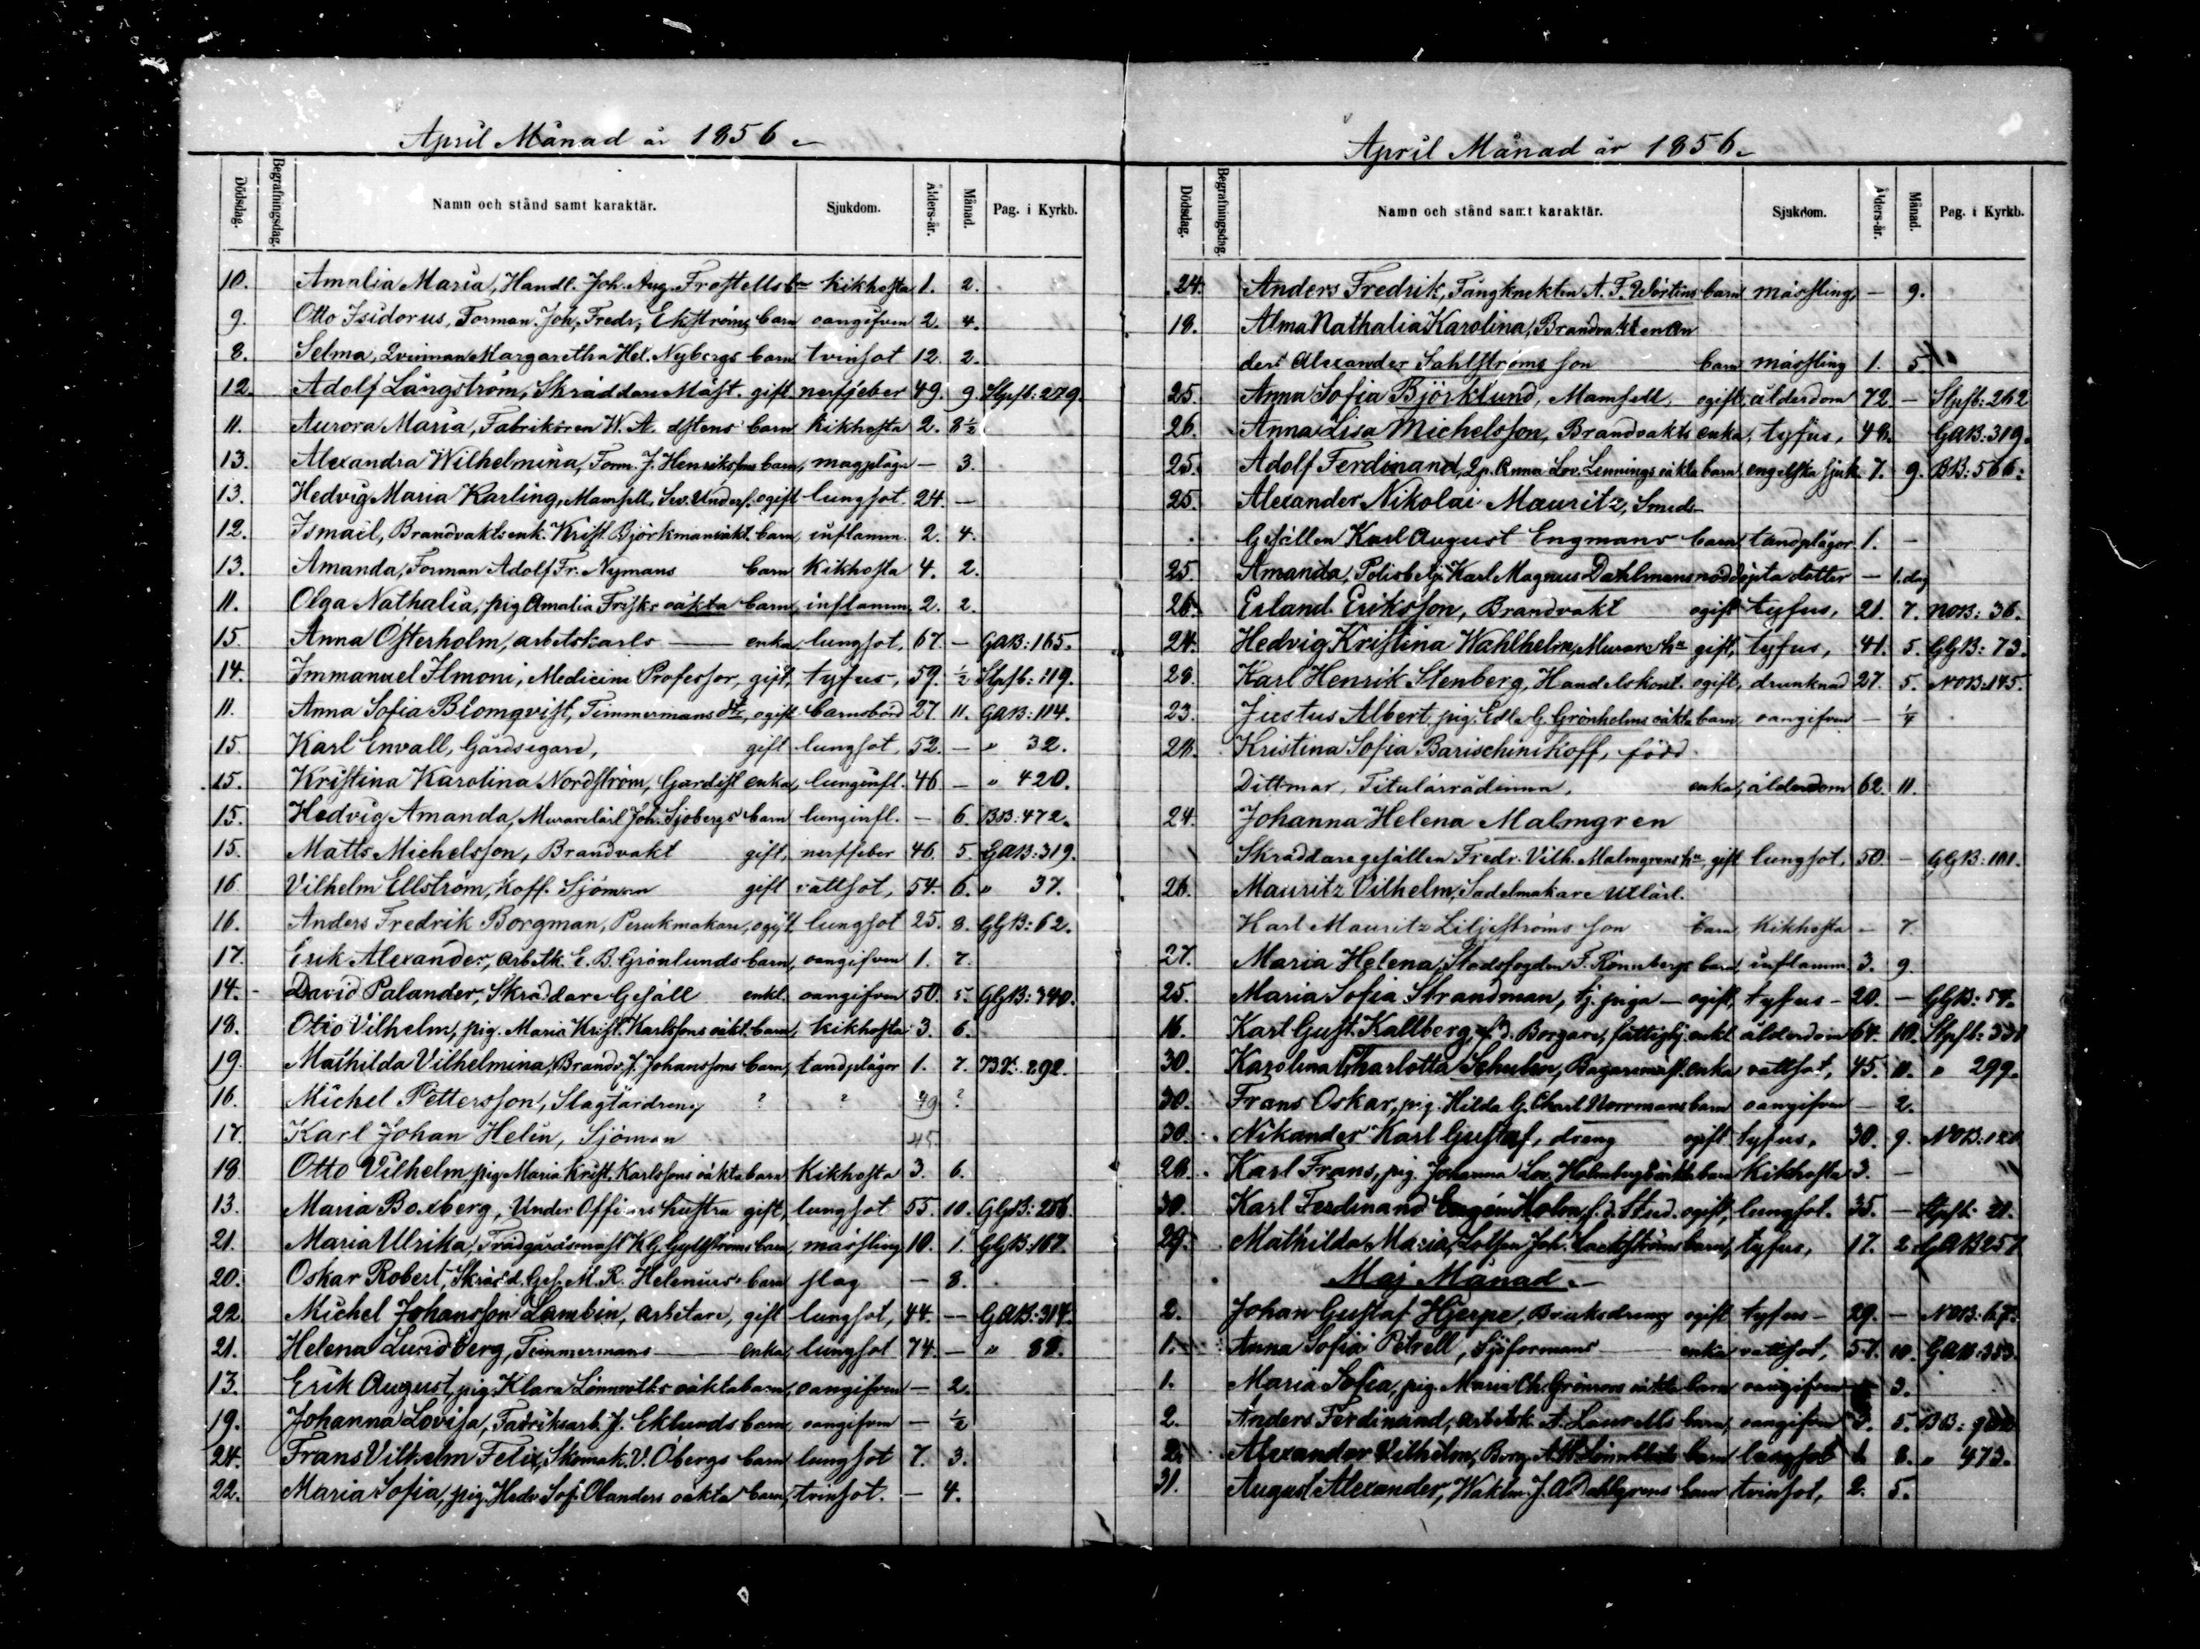 April Månad år 1856
Dödsdag. Begrafningsdag. Namn och stånd samt karaktär. Sjukdom. Ålders-år. Månad. Pag. i Kyrkb.
10. Amalia Maria, Handl. Joh. Aug. Frostells bn kikhosta 1. 2.
9. Otto Isidorus, Forman Joh. Fredr. Ekströms barn oangifven 2. 4.
8. Selma, Qvinnan Margaretha Hel. Nybergs barn tvinsot 12. 2.
12. Adolf Långström, Skräddare Mäst. gift nerffeber 49. 9. Stpsb: 279.
11. Aurora Maria, Fabrikören W. A. barn kikhosta 2. 8½
13. Alexandra Wilhelmina, Form. J. Henrikssons barn, magplågn — 3.
13. Hedvig Maria Karling, Mamsell, ogift lungsot. 24. —
12. Ismaël, Brandvaktsenk. Krist. Björkmans oäkt. barn, inflamm. 2. 4.
13. Amanda, Forman Adolf Fr. Nymans barn kikhosta 4. 2.
11. Olga Nathalia, pig. Amalia Frisks oäkta barn, inflamm. 2. 2.
15. Anna Österholm, arbetskarls — enka, lungsot, 67. — GAB: 165.
14. Immanuel Ilmoni, Medicine Professor, gift, tyfus, 59. ½ Stpsb: 119.
11. Anna Sofia Blomqvist, Timmermans dtr, ogift barnsbörd 27. 11. GAB: 114.
15. Karl Envall, Gårdsegare, gift lungsot, 52. — " 32.
15. Kristina Karolina Nordström, Gardist enka, lunginfl. 46 — " 420.
15. Hedvig Amanda, Murarelärl. Joh. Sjöbergs barn lunginfl. — 6. BB: 472.
15. Matts Michelsson, Brandvakt gift, nerffeber 46. 5. GAB: 319.
16 Vilhelm Ellström, Koff. Sjöman gift vattsot, 54. 6. " 37.
16. Anders Fredrik Borgman, Perukmakare, ogift, lungsot 25. 8. GGB: 62.
17. Erik Alexander, arbetk. E. B. Grönlunds barn, oangifven 1. 7.
14. David Palander, Skräddare Gesäll enkl. oangifven 50. 5. GGB: 340.
18. Otto Vilhelm, pig. Maria Krist. Karlssons oäkt. barn, kikhosta 3. 6.
19. Mathilda Vilhelmina, Brandv. J. Johanssons barn, tandplågor 1. 7. 292.
16. Michel Pettersson, Slagtardreng ? ? 49 ?
17. Karl Johan Helin, Sjöman 45
18 Otto Vilhelm, pig. Maria Krist. Karlssons oäkta barn Kikhosta 3. 6.
13. Maria Boxberg, Under Officers hustru gift, lungsot 55. 10. GGB: 256.
21. Maria Ulrika, Trädgårdsmäst. K. G. Gylsströms barn, mässling 10. 1. GGB: 167.
20. Oskar Robert, Skrädd. Ges. M. R. Helenius barn slag — 8.
22. Michel Johansson Lambin, arbetare, gift lungsot, 44. — GAB: 314.
21. Helena Lundberg, Timmermans — enka, lungsot 74. — " 88.
13. Erik August, pig. Klara Lönnroths oäkta barn, oangifven — 2.
19. Johanna Lovisa, Fabriksarb. J. Eklunds barn, oangifven — ½
24. Frans Vilhelm Felix, Skomak. V. Öbergs barn lungsot 7. 3.
22. Maria Sofia, pig. Hedv. Sof. Olanders oäkta barn, tvinsot. — 4.
April Månad år 1856
Dödsdag. Begrafningsdag. Namn och stånd samt karaktär. Sjukdom. Ålders-år. Månad. Pag. i Kyrkb.
24. Anders Fredrik, Fångknekten A. F. Wörtins barn mässling, — 9.
18. Alma Nathalia Karolina, Brandvakt enan
ders Alexander Sahlströms son barn mässling 1. 5
25. Anna Sofia Björklund, Mamsell, ogift, ålderdom 72. — Stpsb: 262
26. Anna Lisa Michelsson, Brandvakts enka, tyfus, 48. GAB: 319.
25. Adolf Ferdinand, Qp. Anna Lov. Lennings oäkta barn, engelska sjuk. 7. 9. BB: 566.
25. Alexander Nikolai Mauritz, Smeds-
Gesällen Karl August Engmans barn, tandplågor 1. —
25. Amanda, Polisbetj. Karl Magnus Dahlmans nöddöpta dotter — 1. dag
26. Erland Eriksson, Brandvakt ogift tyfus, 21. 7. NOB: 36.
24. Hedvig Kristina Wahlhelm, Murare hu gift, tyfus, 41. 5. GGB: 73.
28. Karl Henrik Stenberg, Handelskont. ogift, drunknad 27. 5. NOB: 145.
23. Justus Albert, pig. Edla G. Grönholms oäkta barn, oangifven — ¼
28. Kristina Sofia Barischinikoff, född
Dittmar, Titulärrådinna, enka, ålderdom 62. 11.
24. Johanna Helena Malmgren
Skräddaregesällen Fredr. Vilh. Malmgrens hu, gift lungsot, 50. — GGB: 101.
26. Mauritz Vilhelm, Sadelmakare utlärl.
Karl Mauritz Liljeströms son barn, kikhosta — 7
27. Maria Helena, Stadsfogden F. Rönnbergs barn, inflamm. 3. 9.
25. Maria Sofia Strandman, tj. piga — ogift, tyfus — 20. — GGB: 57.
16. Karl Gust. Kallberg, f. d. Borgare, fattighj. enkl. ålderdom 64. 10. Stpsb: 331
30. Karolina Charlotta Schulen, Bagaremäst. enka vattsot, 45. 11. " 299.
30. Frans Oskar, pig. Hilda G. Charl. Norrmans barn oangifven — 2.
30. Nikander Karl Gustaf, dreng ogift tyfus. 30. 9. NOB: 120
26. Karl Frans, pig. Johanna Lov. Holmbergs oäkta barn kikhosta 3. —
30. Karl Ferdinand Eugén Holm, f. d. Stud. ogift, lungsot. 35. — Stpsb: 21.
29. Mathilda Maria, Lotsen Joh. barn, tyfus, 17. 2 GAB 257
Maj Månad.
2. Johan Gustaf Hjerpe, Bruksdreng ogift tyfus — 29. — NOB: 67.
1. Anna Sofia Petrell, Sjöformans enka vattsot, 57. 10. GAB: 353
1. Maria Sofia, pig. Maria Ch. Grönroos oäkta barn oangifven 3.
2. Anders Ferdinand, arbetsk. A. Laurells barn, oangifven 5. BB:
2. Alexander Vilhelm, Borg. barn lungsot 1. 8. " 473.
31. August Alexander, Waktm. J. A. Dahlgrens barn tvinsot, 2. 5.